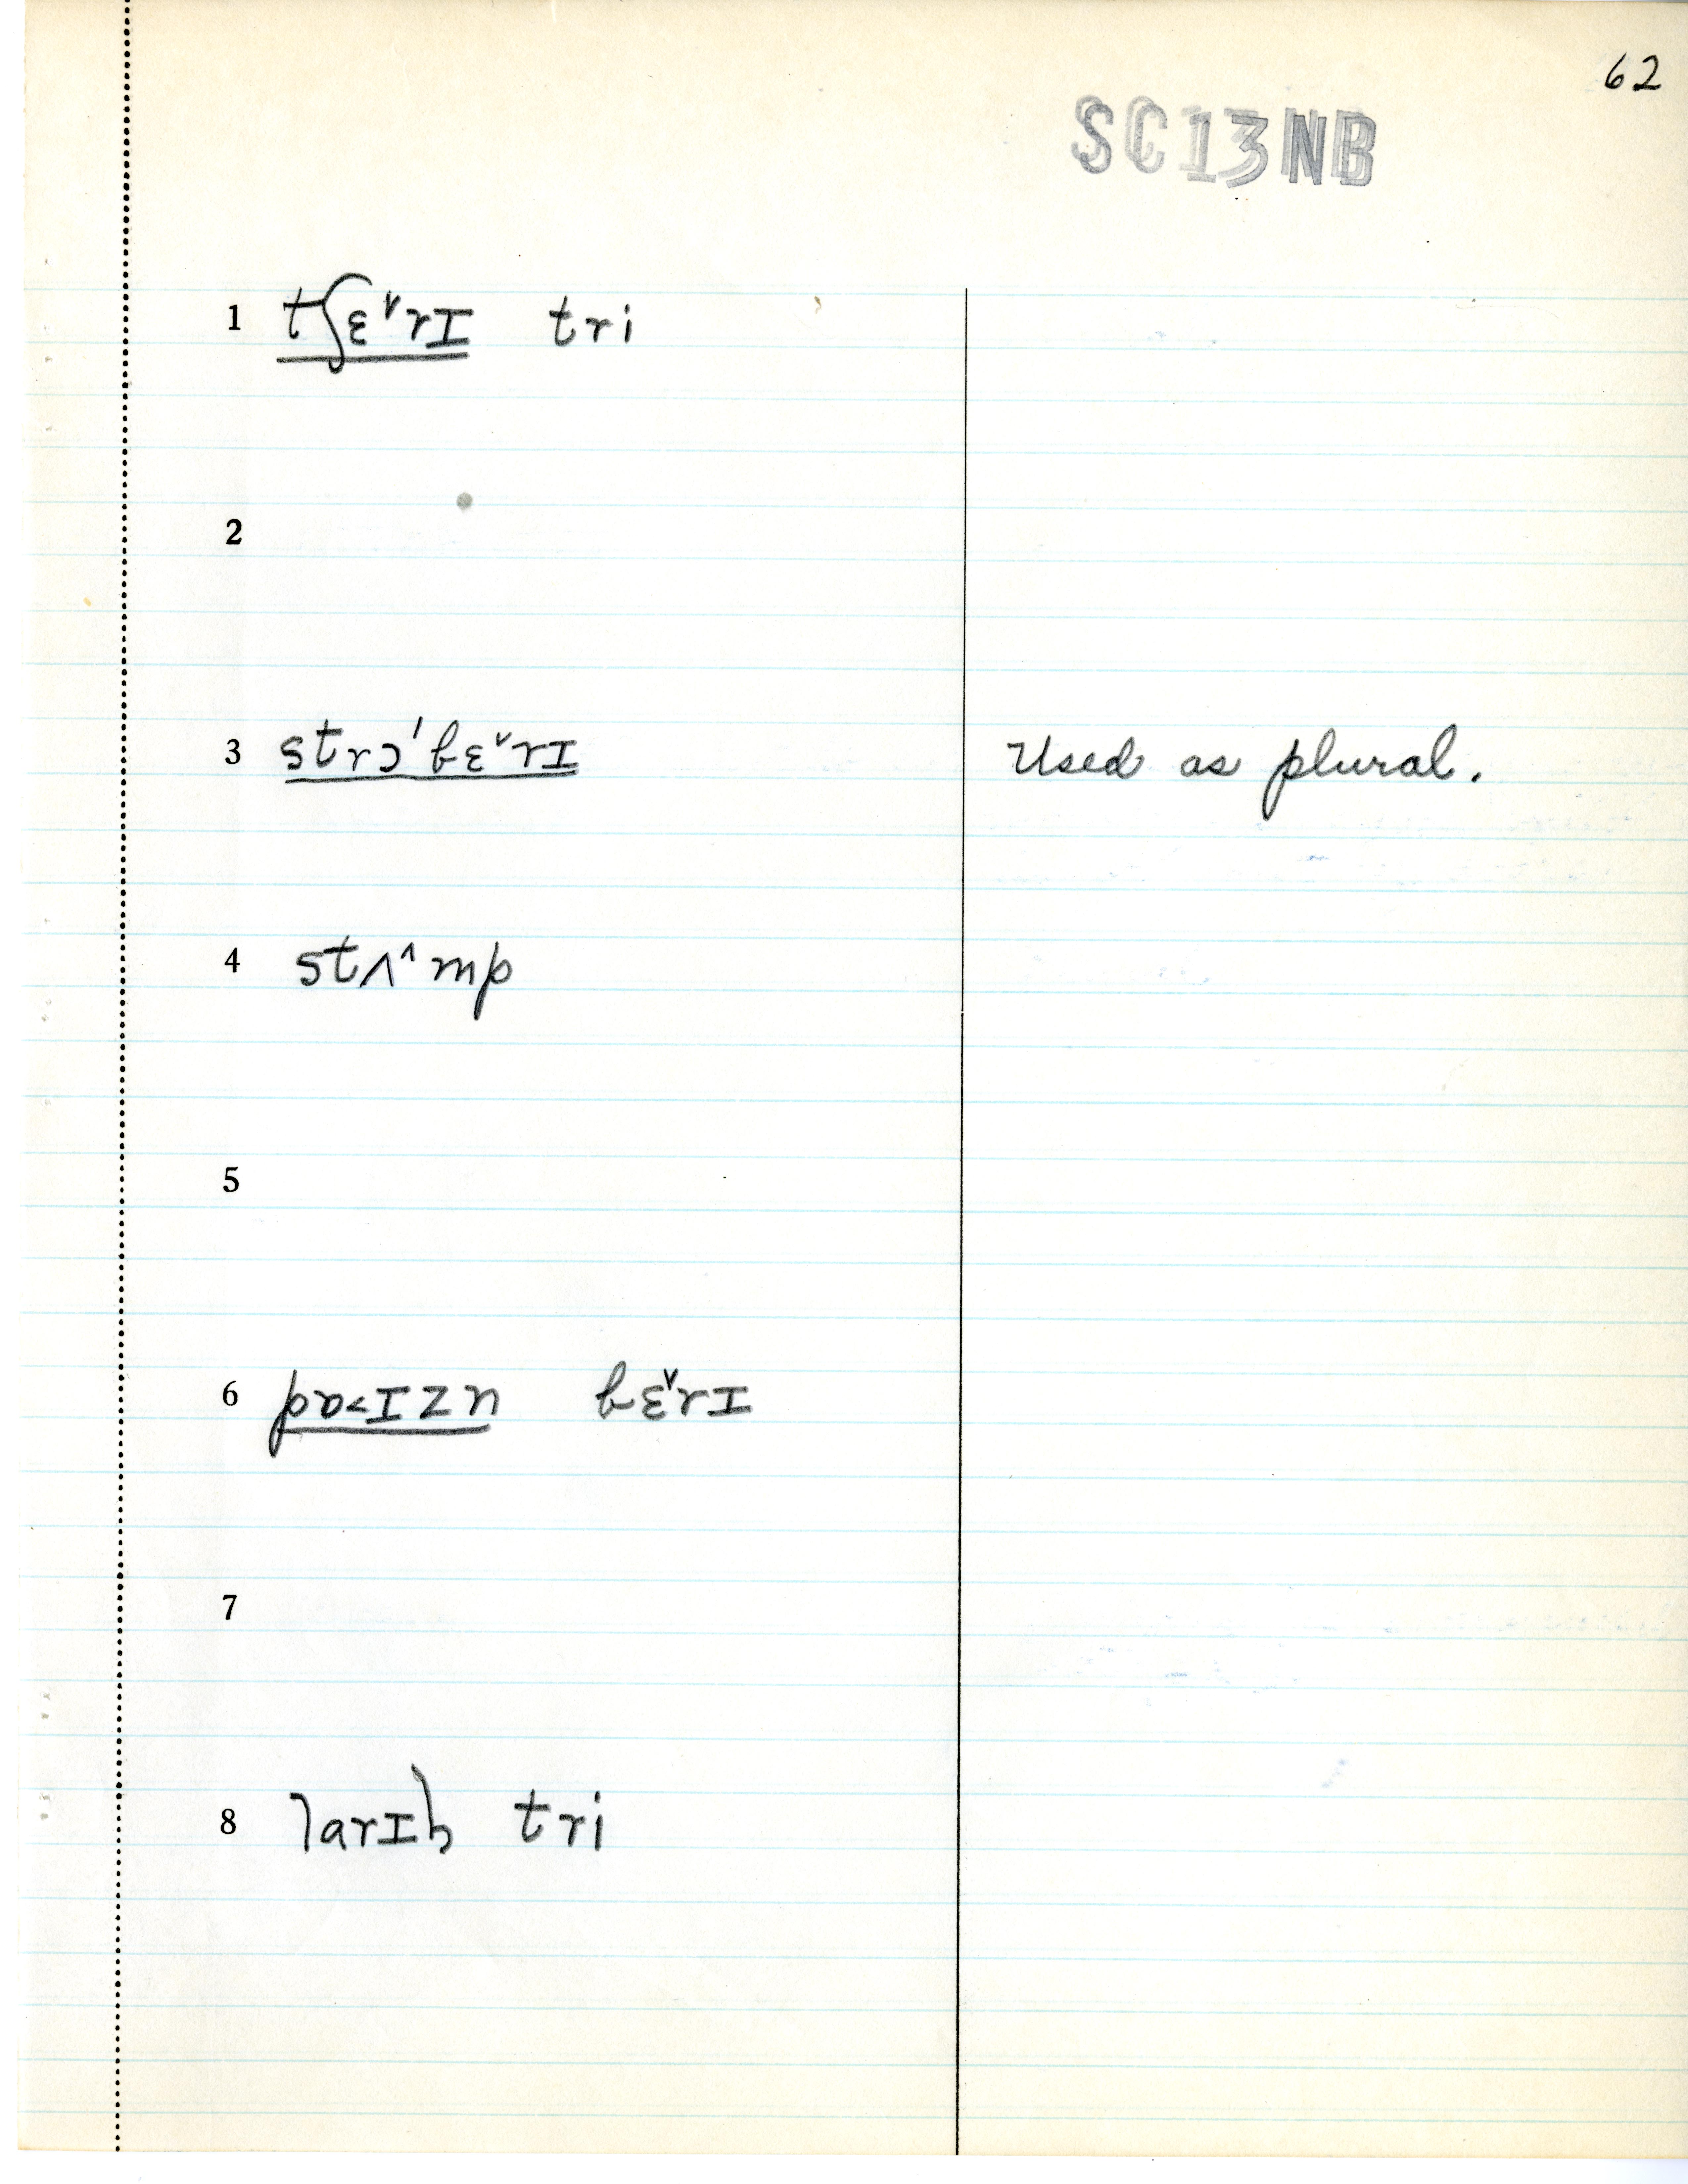 62
SC13NB
1 tʃɛˇrɪ tri
2
3 strɔ'bɛˇrɪ Used as plural.
4 stʌ^mp
5
6 pɒ<ɪzn bɛˇrɪ
7
8 larɪtʃ tri